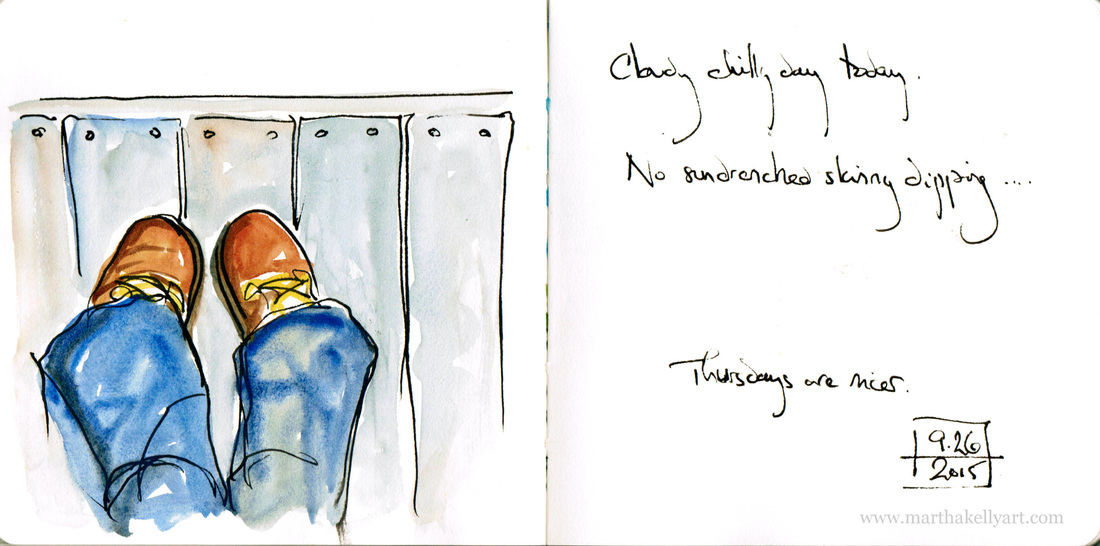 Cloudy chilly day today.
No sundrenched skinny dipping ....
Thursdays are nicer.
9.26
2015
www.marthakellyart.com